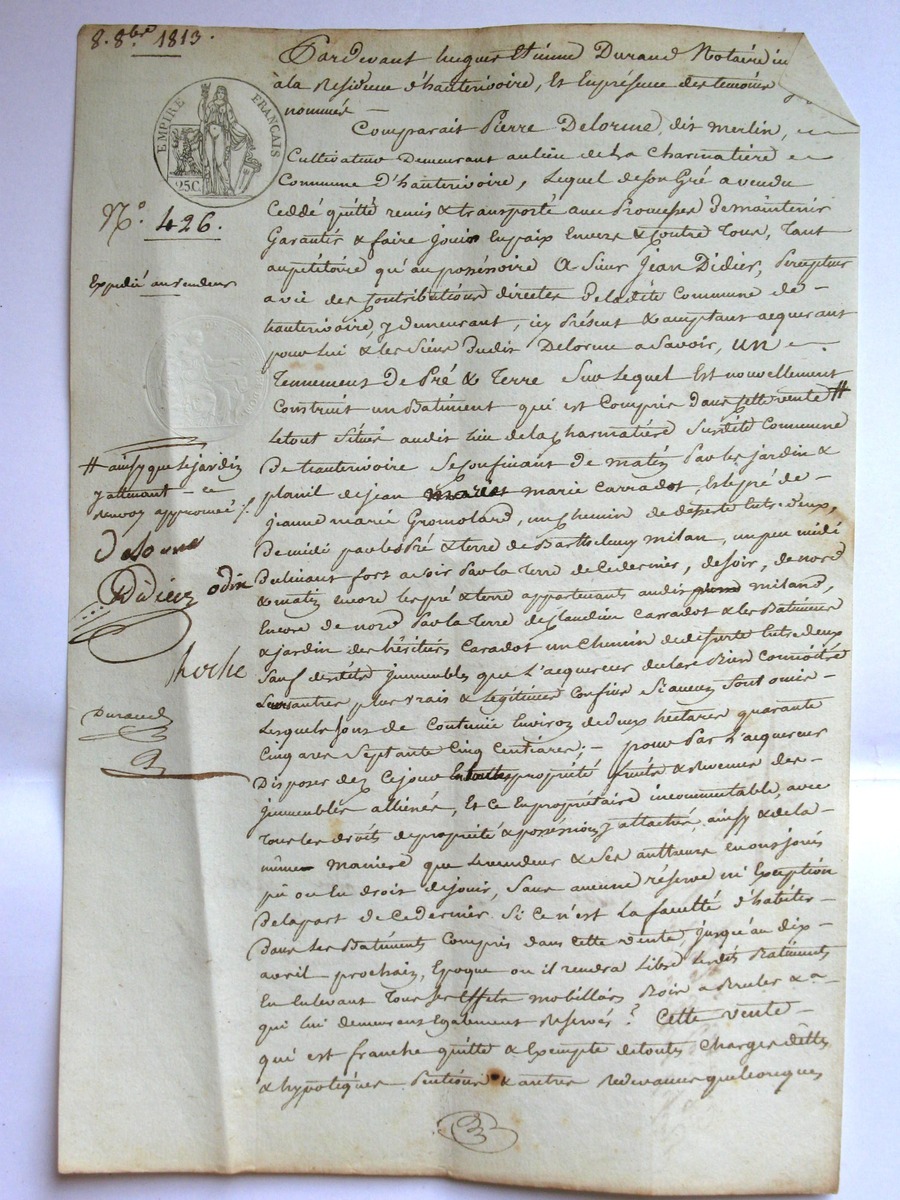 8. 8bre 1813.
EMPIRE FRANÇAIS
25C.
N.o 426.
Expedié au vendeur
# ainsy que le jardin
y attenant - ce
renvoy approuvé /.
Delorme
Didier odin
Durand
Pardevant hugues Etienne Durand Notaire
à la Residence d'hauterivoire, Et En présence des temoins
nommés —
Comparait Pierre Delorme, dit merlin,
Cultivateur Demeurant au lieu de La Charmatière
Commune D'hauterivoire, Lequel de son Gré a vendu
Ceddé quitté remis & transporté avec Promesses De maintenir
Garantir & faire jouir En paix Envers & Contre Tous, Tant
au pétitoire qu'au possessoire A Sieur Jean Didier, Percepteur
a vie des Contributions directes De la dite Commune de -
hauterivoire, y demeurant, icy Présent & acceptant acquerant
pour Lui & les Siens Dudit Delorme a Savoir, un
Tennement De Pré & Terre Sur Lequel Est nouvellement
Construit un Batiment qui est Compris Dans Cette vente #
Le tout Situé audit Lieu de la Charmatière Susdite Commune
De hauterivoire Se Confinant De matin Par les jardin &
de jean marie Carradot, Et le pré de -
jeanne marie Gromolard, un Chemin de deserte Entre deux,
De midi par le Pré & terre de Barthelemy milan, un peu midi
Declinant fort a soir Par La Terre de Ce dernier, de soir, de nord
& matin encore les pré & terre appartenants audit miland,
Encore de nord Par La Terre de Claudine Carradot & les Batiments
& jardin des héritiers Caradot un Chemin de desserte Entre deux
Sauf desdits immeubles que L'acquereur declare Bien Connoitre
autres plus vrais & Legitimes Confins Si aucuns Sont omis -
Lesquels Sont de Contenue Environ de deux hectares quarante
Cinq ares Septante Cinq Centiares; - pour Par L'acquereur
Disposer dez Ce jour propriété fruits & revenus des -
jmmeubles alliénés, Et Ce En propriétaire incommutable, avec
Tous les droits de propriété & possession y attachés, ainsy & de la
même maniere que Le vendeur & Ses autheurs en ont joui
pû ou En droit de jouir, Sans aucune réserve ni Exception
De la part de Ce dernier. Si Ce n'est La faculté d'habiter -
Dans Les Batiments Compris dans Cette vente, jusqu'au dix -
avril prochain, Epoque ou il rendra Libre Lesdits Batiments
En Enlevant Tous Ses Effets mobilliers Bois a Bruler &a -
qui Lui demeurent Egalement Reservés. Cette vente -
qui est franche quitte & Exempte de toutes Charges dettes
& hypotèques Pentions & autres redevances quelconques